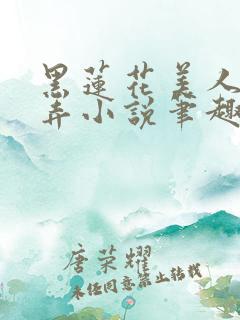 黑莲花美人
弄小说笔趣
唐荣耀
未经同意禁止转载